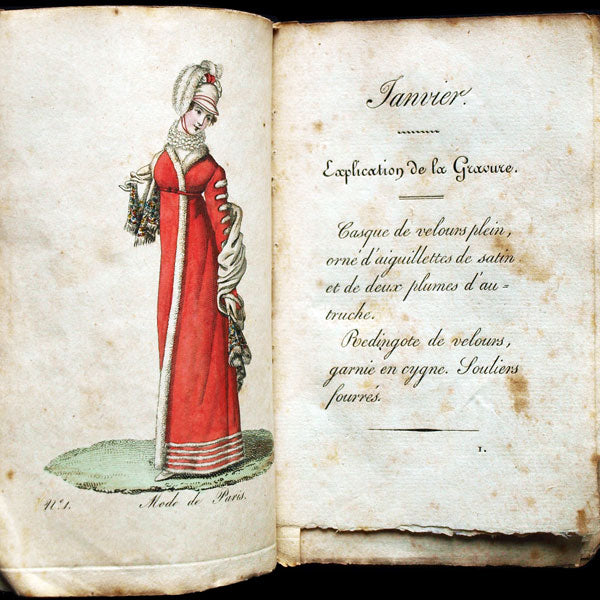 Nº1. Mode de Paris.
Janvier.
Explication de la Gravure.
Casque de velours plein,
orné d'aiguillettes de satin
et de deux plumes d'au-
truche.
Redingote de velours,
garnie en cygne. Souliers
fourrés.
1.